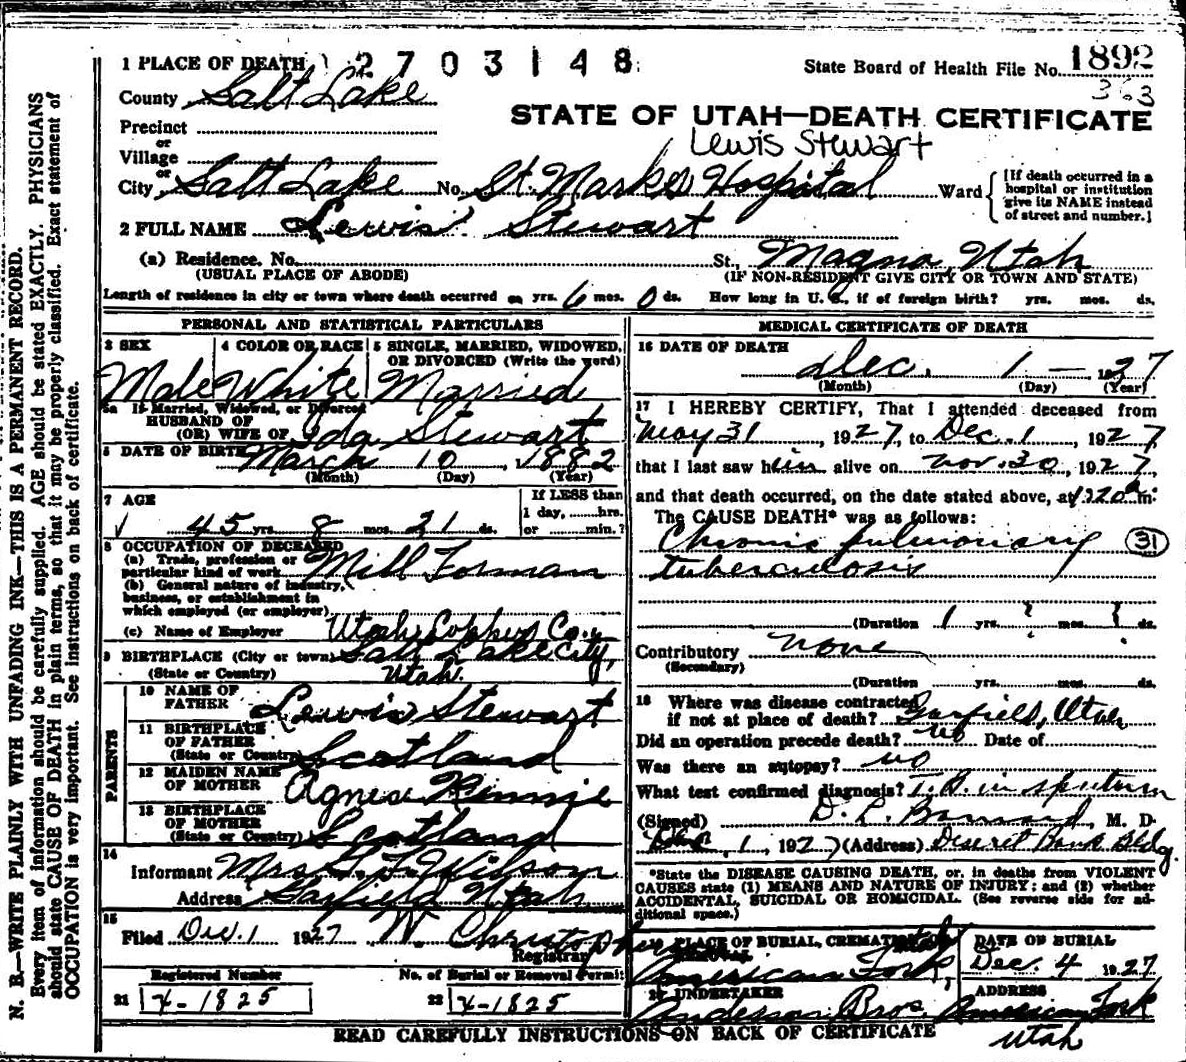 1 PLACE OF DEATH 2703148
State Board of Health File No. 1892
363
County Salt Lake
STATE OF UTAH—DEATH CERTIFICATE
Precinct
or
Village
Lewis Stewart
or
City Salt Lake No. St. Marks Hospital Ward
[If death occurred in a hospital or institution give its NAME instead of street and number.]
2 FULL NAME Lewis Stewart
(a) Residence. No. St., Magna, Utah
(USUAL PLACE OF ABODE) (IF NON-RESIDENT GIVE CITY OR TOWN AND STATE)
Length of residence in city or town where death occurred yrs. 6 mos. 0 ds. How long in U. S., if of foreign birth? yrs. mos. ds.
PERSONAL AND STATISTICAL PARTICULARS
3 SEX
Male
4 COLOR OR RACE
White
5 SINGLE, MARRIED, WIDOWED,
OR DIVORCED (Write the word)
Married
5a If Married, Widowed, or Divorced
HUSBAND OF
(OR) WIFE OF Ida Stewart
6 DATE OF BIRTH March 10, 1882
(Month) (Day) (Year)
7 AGE
45 yrs. 8 mos. 21 ds.
If LESS than
1 day, hrs.
or min.?
8 OCCUPATION OF DECEASED
(a) Trade, profession or
particular kind of work Mill Forman
(b) General nature of industry,
business, or establishment in
which employed (or employer)
(c) Name of Employer Utah Copper Co.
9 BIRTHPLACE (City or town) Salt Lake City,
(State or Country) Utah.
PARENTS
10 NAME OF
FATHER Lewis Stewart
11 BIRTHPLACE
OF FATHER
(State or Country) Scotland
12 MAIDEN NAME
OF MOTHER Agnese
13 BIRTHPLACE
OF MOTHER
(State or Country) Scotland
14
Informant Mrs. Wilson
Address Garfield Utah
15
Filed Dec. 1 1927 W. Christopherson
Registrar
Registered Number No. of Burial or Removal Permit
21 X-1825 22 X-1825
MEDICAL CERTIFICATE OF DEATH
16 DATE OF DEATH
Dec. 1 — 1927
(Month) (Day) (Year)
17 I HEREBY CERTIFY, That I attended deceased from
May 31, 1927, to Dec. 1, 1927,
that I last saw him alive on Nov. 30, 1927,
and that death occurred, on the date stated above, at 1:20 a m.
The CAUSE DEATH* was as follows:
Chronic pulmonary 31
tuberculosis
(Duration 1 yrs. ? mos. ? ds.
Contributory none
(Secondary)
(Duration yrs. mos. ds.
18 Where was disease contracted
if not at place of death? Garfield, Utah
Did an operation precede death? no Date of
Was there an autopsy? no
What test confirmed diagnosis? T. B. in sputum
(Signed) D. L. Barnard, M. D.
1, 1927 (Address) Deseret Bank Bldg.
*State the DISEASE CAUSING DEATH, or, in deaths from VIOLENT
CAUSES state (1) MEANS AND NATURE OF INJURY; and (2) whether
ACCIDENTAL, SUICIDAL OR HOMICIDAL. (See reverse side for ad-
ditional space.)
19 PLACE OF BURIAL, CREMATION
REMOVAL Utah
American Fork
DATE OF BURIAL
Dec. 4 1927
20 UNDERTAKER
Anderson Bros.
ADDRESS
American Fork
Utah
READ CAREFULLY INSTRUCTIONS ON BACK OF CERTIFICATE
N. B.—WRITE PLAINLY WITH UNFADING INK—THIS IS A PERMANENT RECORD.
Every item of information should be carefully supplied. AGE should be stated EXACTLY. PHYSICIANS
should state CAUSE OF DEATH in plain terms, so that it may be properly classified. Exact statement of
OCCUPATION is very important. See instructions on back of certificate.